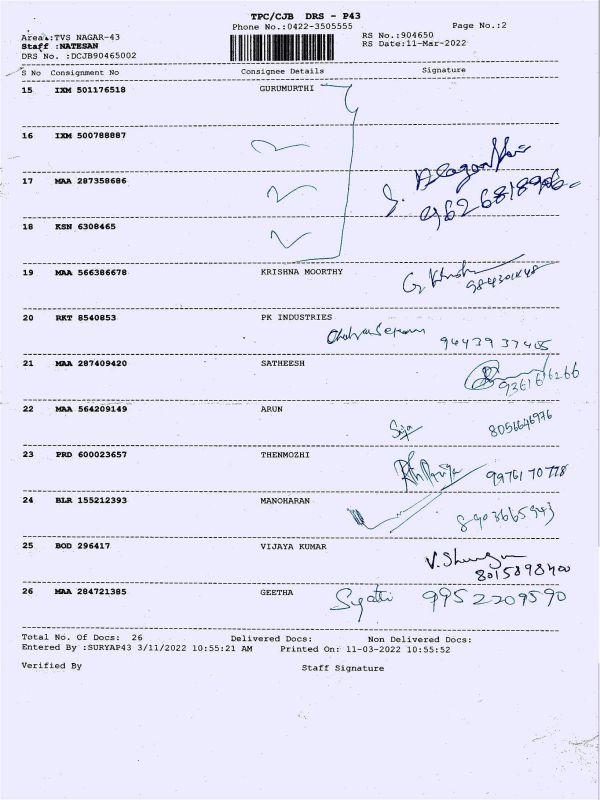 TPC/CJB DRS - P43
Phone No.:0422-3505555
Page No.:2
Area :TVS NAGAR-43
RS No.:904650
Staff :NATESAN
RS Date:11-Mar-2022
DRS No. :DCJB90465002
S No Consignment No Consignee Details Signature
15 IXM 501176518 GURUMURTHI
16 IXM 500788887
17 MAA 287358686
18 KSN 6308465
19 MAA 566386678 KRISHNA MOORTHY
20 RKT 8540853 PK INDUSTRIES
94439 37405
21 MAA 287409420 SATHEESH
22 MAA 564209149 ARUN
8056646976
23 PRD 600023657 THENMOZHI
99761 70778
24 BLR 155212393 MANOHARAN
8903665943
25 BOD 296417 VIJAYA KUMAR
8015898400
26 MAA 284721385 GEETHA
9952209590
Total No. Of Docs: 26 Delivered Docs: Non Delivered Docs:
Entered By :SURYAP43 3/11/2022 10:55:21 AM Printed On: 11-03-2022 10:55:52
Verified By Staff Signature